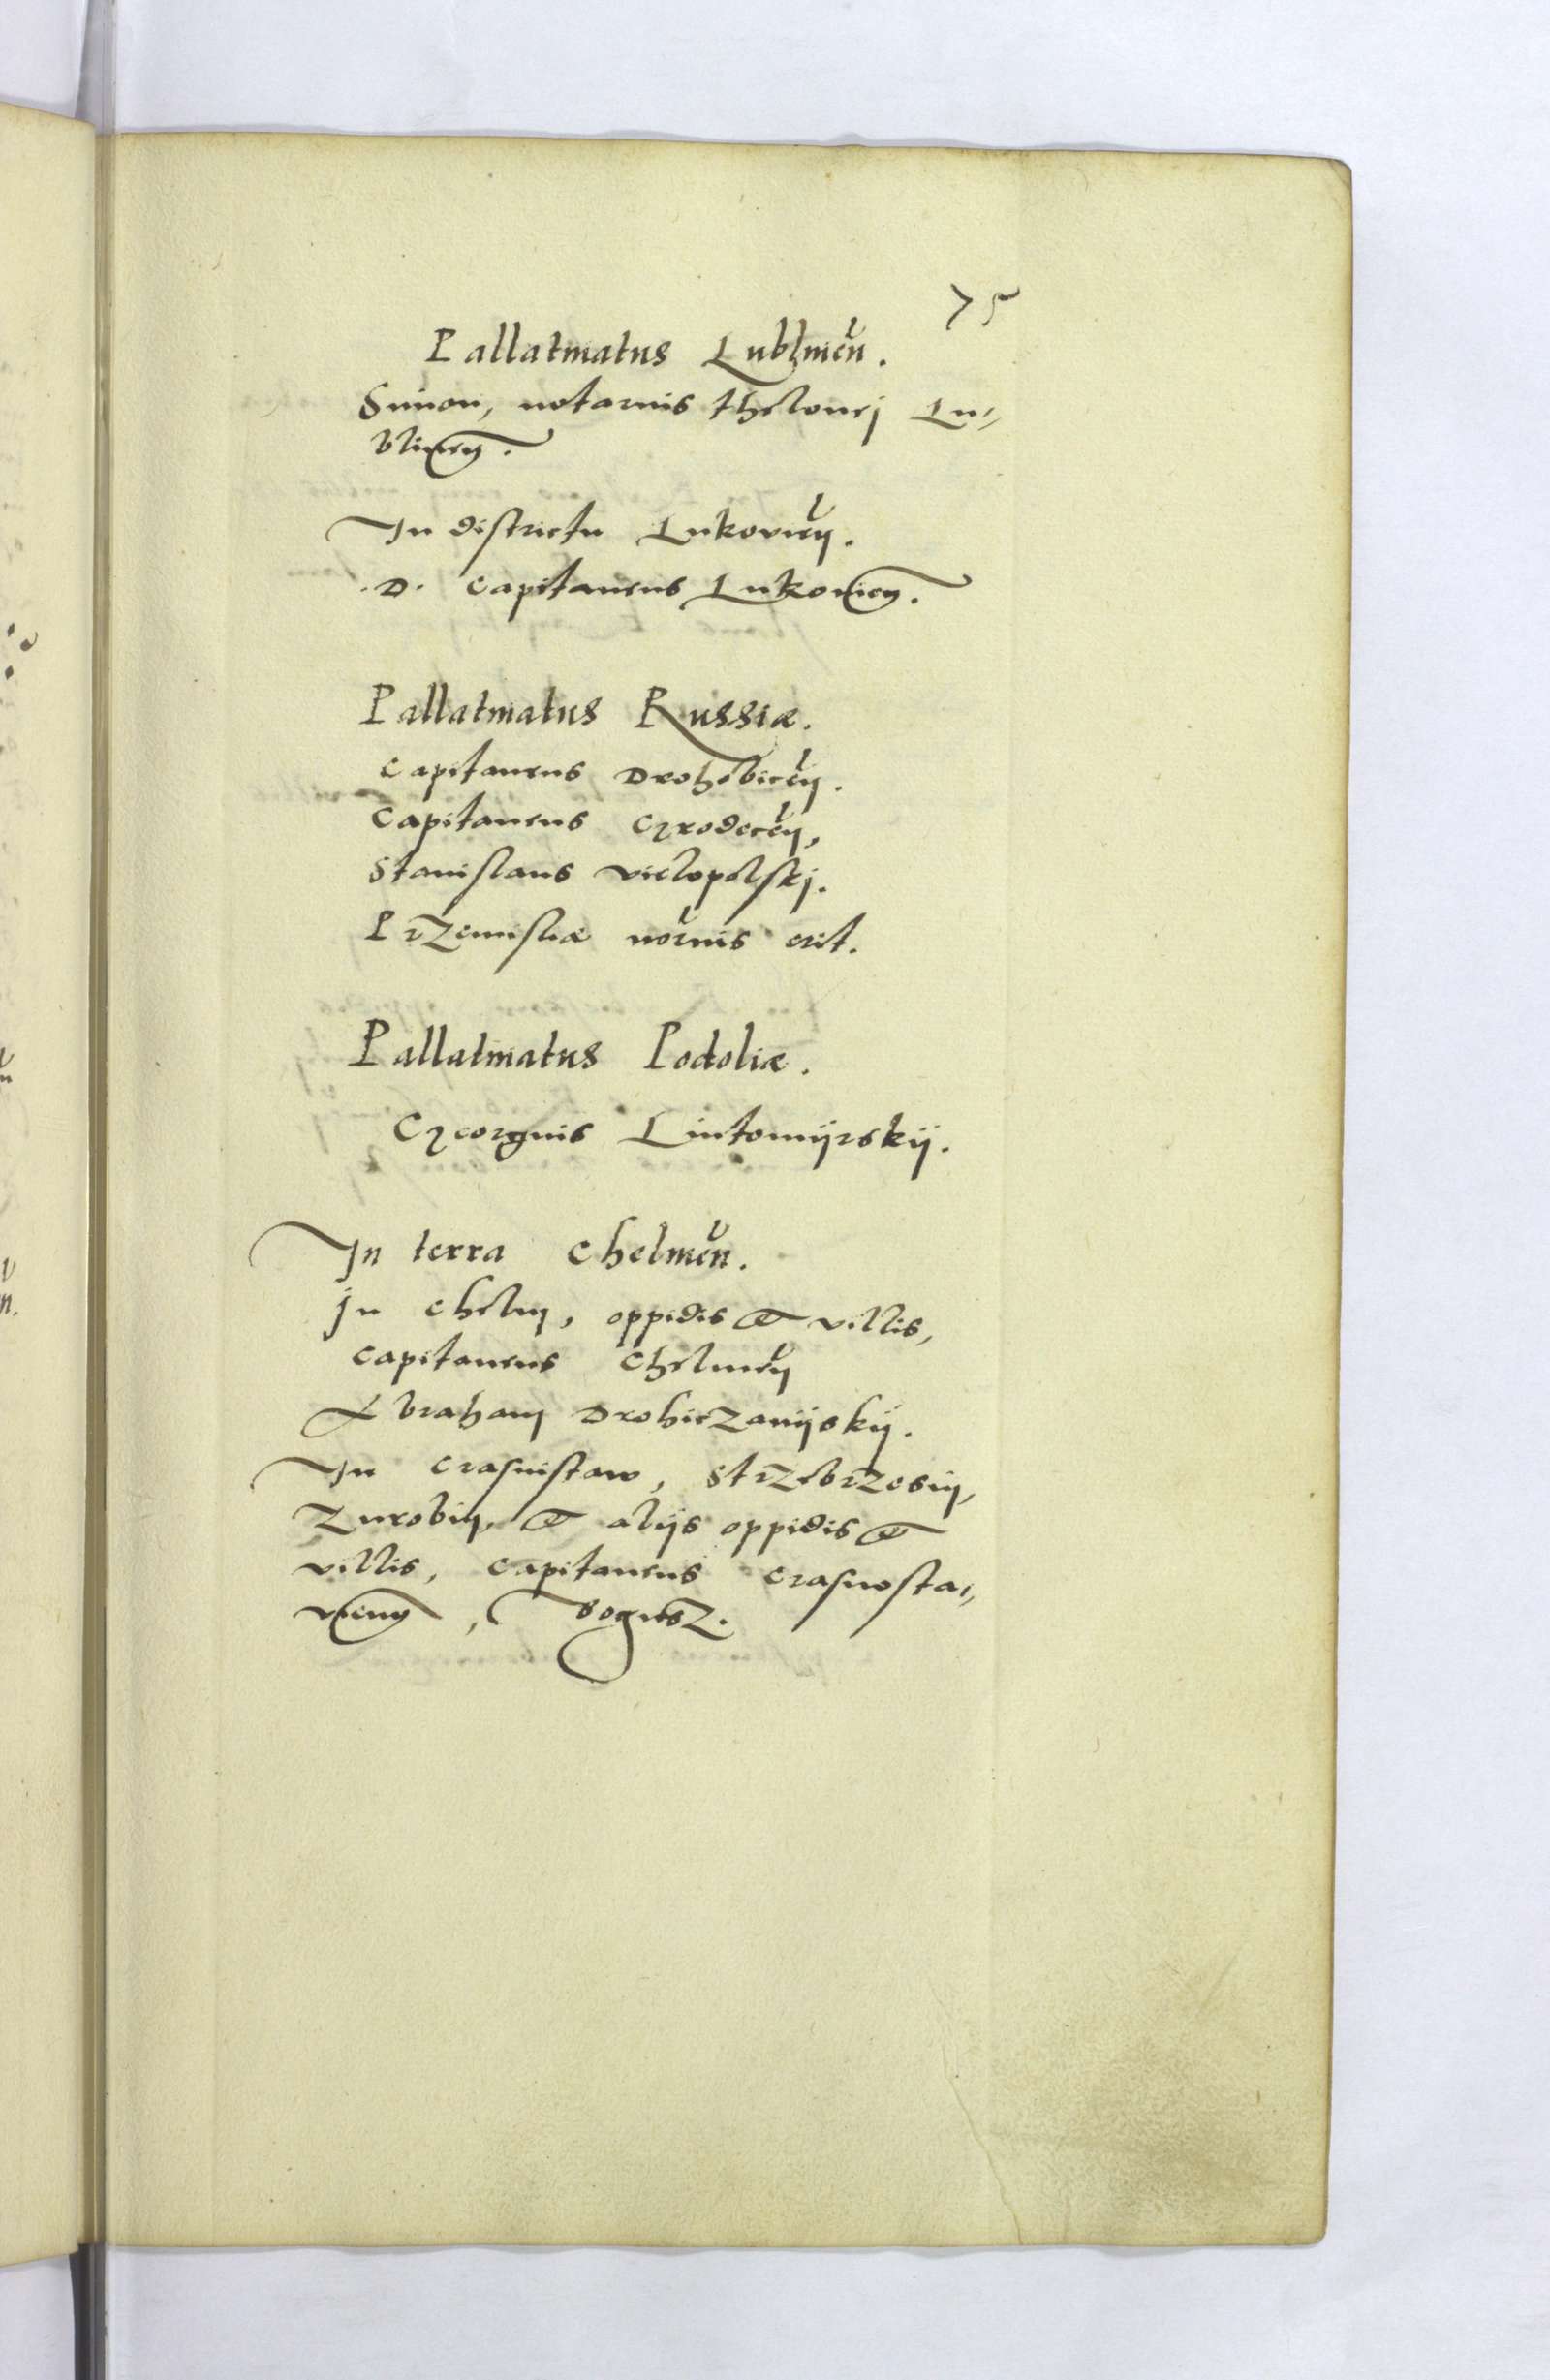 75
Pallatinatus Lublinen.
Simon, notarius thelonej Lu-
blinen.
In districtu Lukovien.
.D. Capitaneus Lukovien.
Pallatinatus Russiæ.
Capitaneus Drohobicen.
Capitaneus Grodecen,
Stanislaus Vielopolskj.
Przemisliæ notrius erit.
Pallatinatus Podoliæ.
Georgius Lintomijrskij.
In terra Chelmen.
In Chelm, oppidis et villis,
Capitaneus Chelmen
Abraham Drohiczanijskij.
In Crasnistaw, Strzebrzesin,
Turobin, et alijs oppidis et
villis, Capitaneus Crasnosta-
vien, Bogusz.